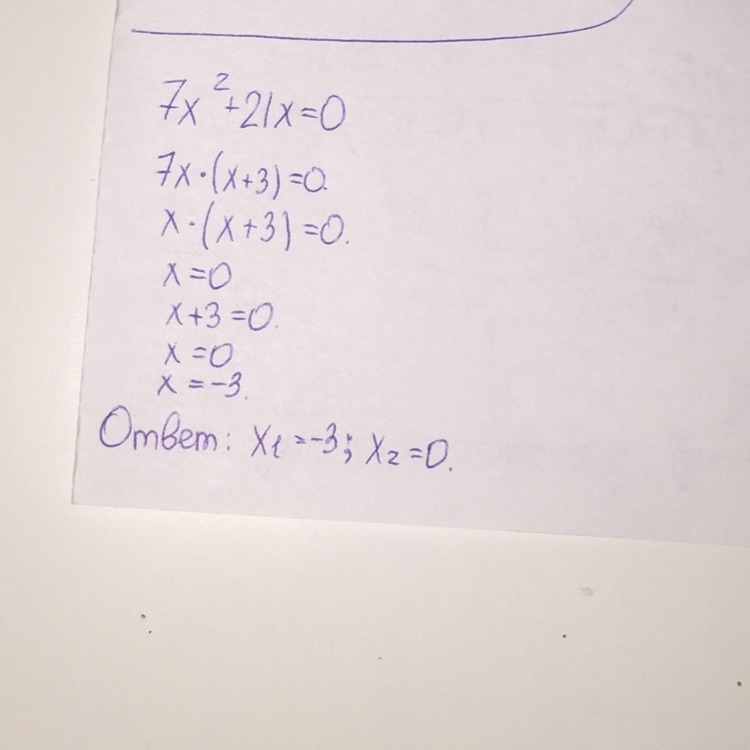 7x²+21x=0
7x·(x+3)=0.
x·(x+3)=0.
x=0
x+3=0.
x=0
x=-3.
Ответ: x₁=-3; x₂=0.